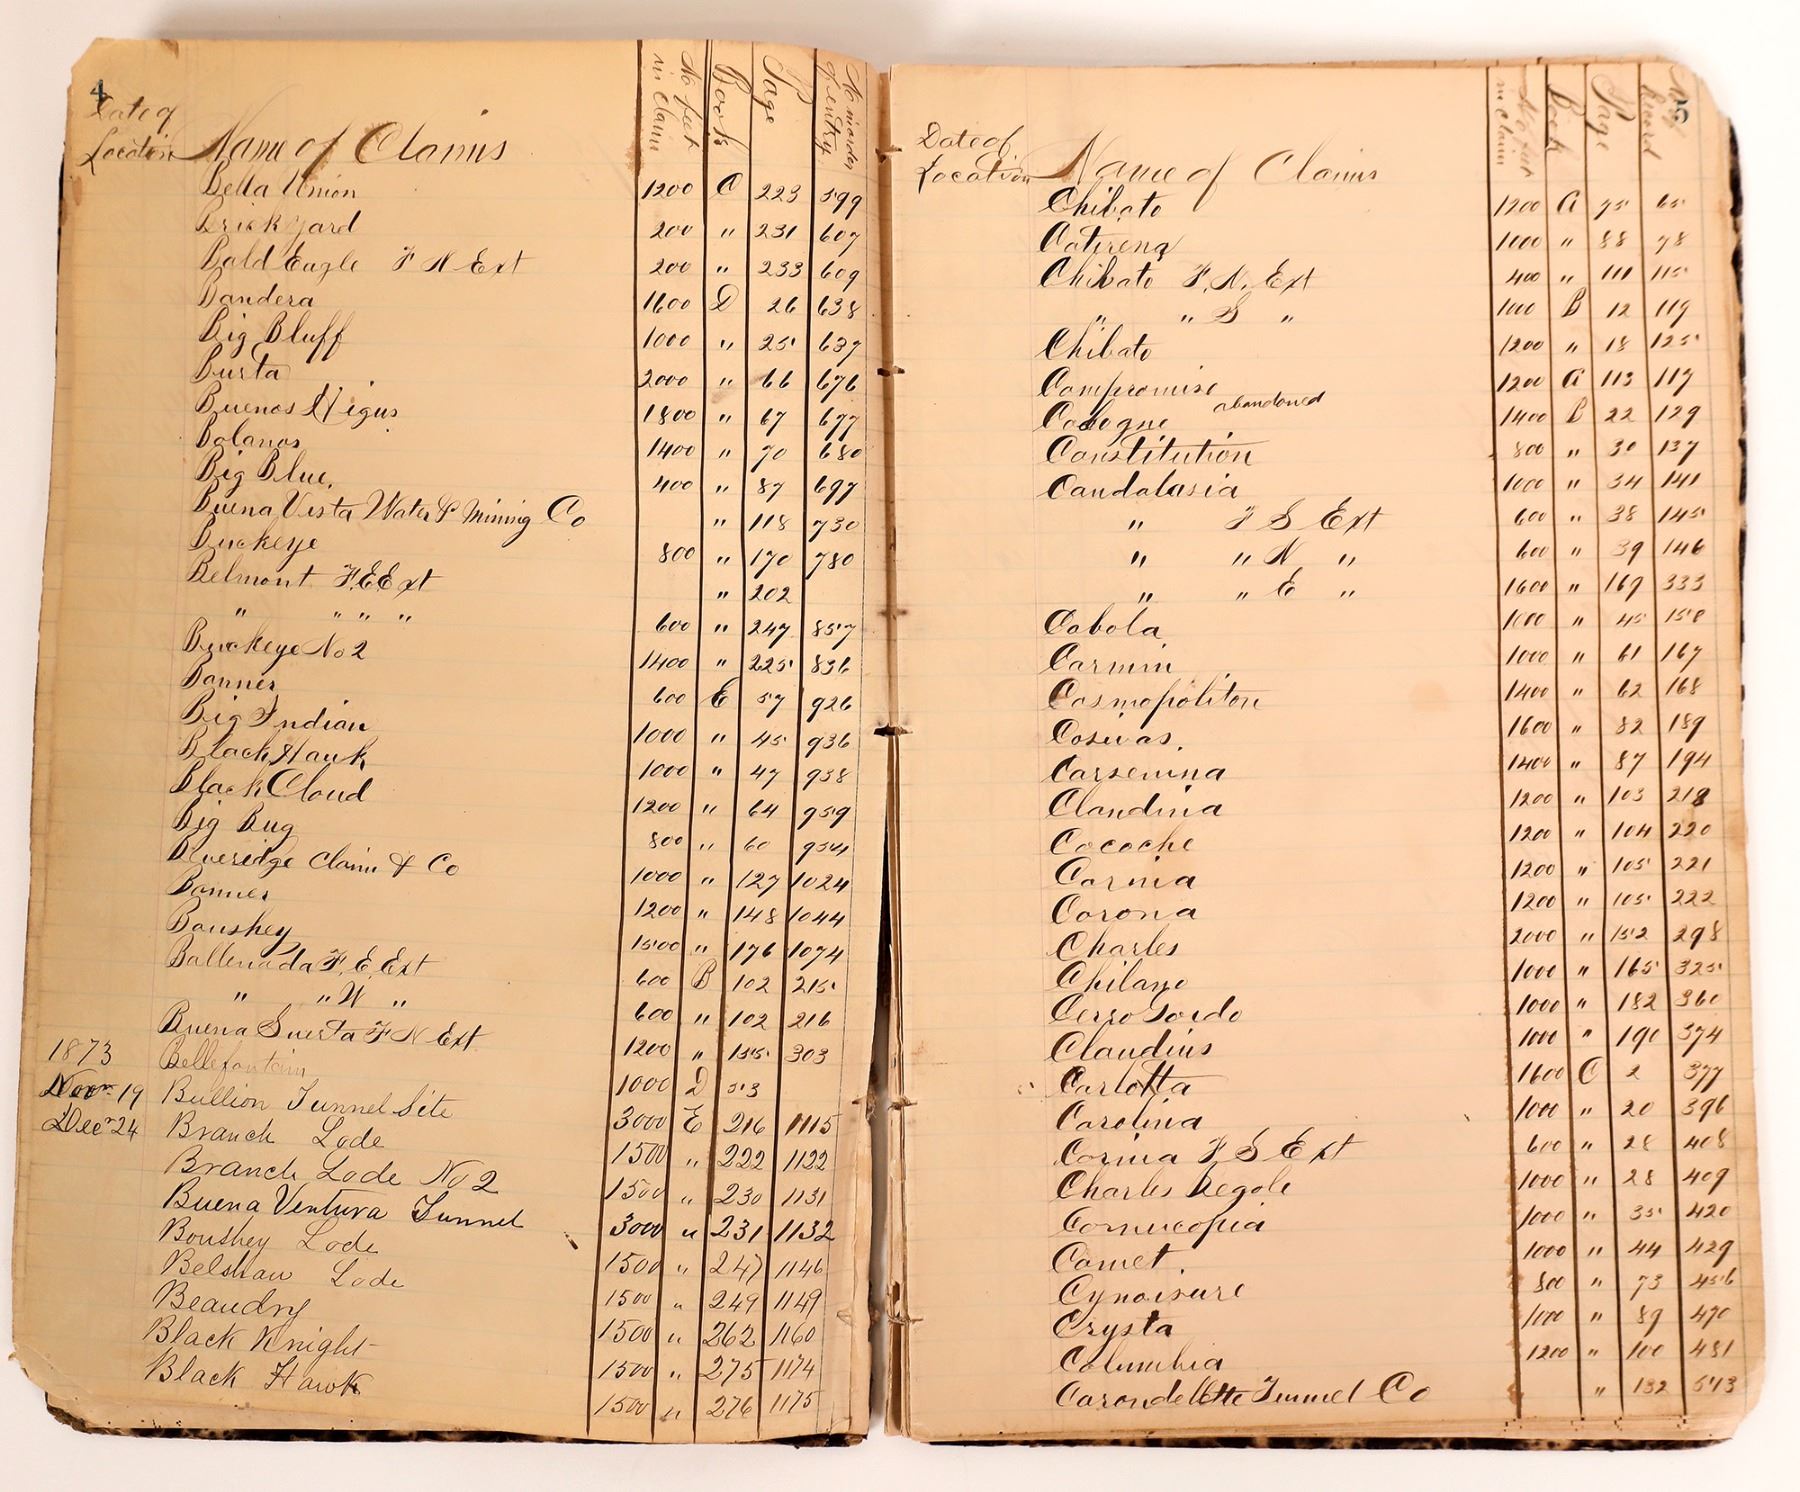 4
Date of Location Name of Claims No feet in Claim Book Page No
Bella Union 1200 C 223 599
Brick yard 200 " 231 607
Bald Eagle F N Ext 200 " 233 609
Bandera 1600 D 26 638
Big Bluff 1000 " 25 637
Busta 2000 " 66 676
Buenos 1800 " 67 677
Bolanos 1400 " 70 680
Big Blue. 400 " 87 697
Buena Vista Water & Mining Co " 118 730
Buckeye 800 " 170 780
Belmont F.E Ext " 202
" " " " 600 " 247 857
Buckeye No 2 1400 " 225 836
Banner 600 E 57 926
Big Indian 1000 " 45 936
Black Hawk 1000 " 47 938
Black Cloud 1200 " 64 959
Big Bug 800 " 60 954
Beveridge Claim & Co 1000 " 127 1024
Banner 1200 " 148 1044
Boushey 1500 " 176 1074
Ballenada F. E. Ext 600 B 102 215
" " W " 600 " 102 216
Buena Suerta F N Ext 1200 " 155 303
1873 Bellefontain 1000 D 53
Nov 19 Bullion Tunnel Site 3000 E 216 1115
Decr 24 Branch Lode 1500 " 222 1122
Branch Lode No 2 1500 " 230 1131
Buena Ventura Tunnel 3000 " 231 1132
Boushey Lode 1500 " 247 1146
Belshaw Lode 1500 " 249 1149
Beaudry 1500 " 262 1160
Black Knight 1500 " 275 1174
Black Hawk 1500 " 276 1175
5
Date of Location Name of Claims No feet in Claim Book Page Record
Chibato 1200 A 75 65
Catirena 1000 " 88 78
Chibato F. N. Ext 400 " 111 115
" " S " 1000 B 12 119
Chibato 1200 " 18 125
Compromise 1200 A 113 117
Cologne abandoned 1400 B 22 129
Constitution 800 " 30 137
Candalasia 1000 " 34 141
" F S Ext 600 " 38 145
" " N " 600 " 39 146
" " E " 1600 " 169 333
Cobola 1000 " 45 150
Carmin 1000 " 61 167
Cosmopoliton 1400 " 62 168
Cosivas. 1600 " 82 189
Carsenina 1400 " 87 194
Claudina 1200 " 103 218
Cocoche 1200 " 104 220
Carnia 1200 " 105 221
Corona 1200 " 105 222
Charles 2000 " 152 298
Chilano 1000 " 165 325
Cerro Gordo 1000 " 182 360
Claudius 1000 " 190 374
Carlotta 1600 C 2 377
Carolina 1000 " 20 396
Corina F S Ext 600 " 28 408
Charles Regole 1000 " 28 409
Cornucopia 1000 " 35 420
Comet. 1000 " 44 429
Cynoisure 800 " 73 456
Crysta 1000 " 89 470
Columbia 1200 " 100 481
Carondelette Tunnel Co " 132 513